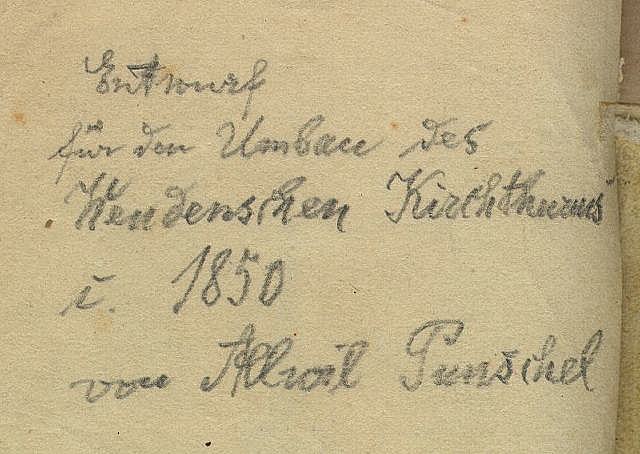 Entwurf
für den Umbau des
Wendenschen Kirchthurms
i. 1850
von Punschel